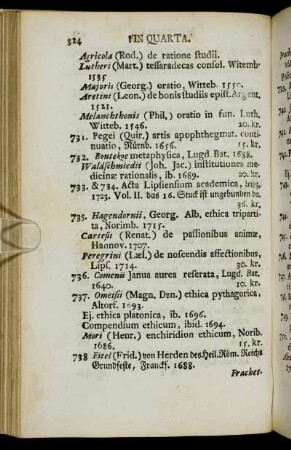 324 IIN QUARTA.
Agricola (Rod.) de ratione studii.
Lutheri (Mart.) tessaradecas consol. Witemb.
1535
Majoris (Georg.) oratio, Witteb. 1550.
Aretini (Leon.) de bonis studiis epist. Argent.
1521.
Melanchthonis (Phil,) oratio in fun. Luth,
Witteb. 1546. 20. kr.
731. Pegei (Quir.) artis apophthegmat. conti-
nuario, Nürnb. 1656. 15. kr.
732. Bontekoe metaphysica, Lugd. Bat. 1688.
Waldschmiedii (Joh. Jac.) institutiones me-
dicinæ rationalis, ib. 1689. 20. kr.
733. & 734. Acta Lipsiensium academica, Leipz.
1723. Vol. II. das 16. Stuck ist ungebunden da.
36. kr.
735. Hagendornii, Georg. Alb. ethica triparti-
ta, Norimb. 1715.
Cartesii (Renat.) de passionibus animæ,
Hannov. 1707.
Peregrini (Læl.) de noscendis affectionibus,
Lips. 1714. 30. kr.
736. Comenii Janua aurea reserata, Lugd. Bat.
1640. 10. kr.
737. Omeisii (Magn. Dan.) ethica pythagorica,
Altorf. 1693.
Ej. ethica platonica, ib. 1696.
Compendium ethicum, ibid. 1694.
Mori (Henr.) enchiridion ethicum, Norib.
1686. 15. kr.
738 Eitel (Frid.) von Herden des Heil. Röm. Reichs
Grundfeste, Franckf. 1688.
Frachet-